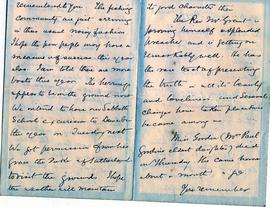 remembered to you. The fishing
community are just arriving
in their usual noisy fashion
Hope the poor people may have a
measure of success this year
also. I am told there are more
boats this year. The herrings
appear to be on the ground now.
We intend to have our Sabbath
School excursion to Dunrobin
this year on Tuesday next
We got permission from his
Grace the Duke of Sutherland
to visit the grounds. Hope
the weather will maintain
its good character then
The Rev Mr Grant is
proving himself a splendid
preacher and is getting on
remarkably well. He has
the rare tact of presenting
the truth in all its beauty
and loveliness and several
changes have taken place since he
became among us
Miss Gordon (Mr Paul
Gordon's eldest daughter) died
on Thursday. She came home
about a month
Yrs remember